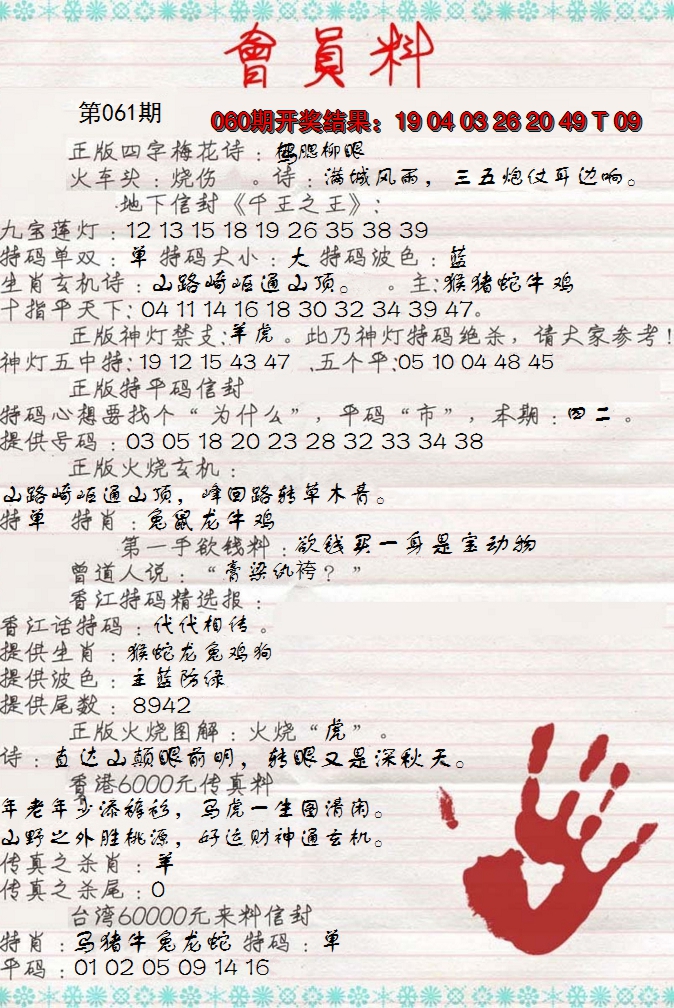 會員料
第061期
060期开奖结果：19 04 03 26 20 49 T 09
正版四字梅花诗：桃腮柳眼
火车头：烧伤 。诗：满城风雨，三五炮仗耳边响。
地下信封《千王之王》：
九宝莲灯：12 13 15 18 19 26 35 38 39
特码单双：单 特码大小：大 特码波色：蓝
生肖玄机诗：山路崎岖通山顶。 。主：猴猪蛇牛鸡
十指平天下：04 11 14 16 18 30 32 34 39 47。
正版神灯禁支：羊虎。此乃神灯特码绝杀，请大家参考！
神灯五中特：19 12 15 43 47 .五个平：05 10 04 48 45
正版特平码信封
特码心想要找个“为什么”，平码“市”，本期：四二。
提供号码：03 05 18 20 23 28 32 33 34 38
正版火烧玄机：
山路崎岖通山顶，峰回路转草木青。
特单 特肖：兔鼠龙牛鸡
第一手欲钱料：欲钱买一身是宝动物
曾道人说：“膏梁纨袴？”
香江特码精选报：
香江话特码：代代相传。
提供生肖：猴蛇龙兔鸡狗
提供波色：主蓝防绿
提供尾数：8942
正版火烧图解：火烧“虎”。
诗：直达山颠眼前明，转眼又是深秋天。
香港6000元传真料
年老年少添裤衫，马虎一生图清闲。
山野之外胜桃源，好运财神通玄机。
传真之杀肖：羊
传真之杀尾：0
台湾60000元来料信封
特肖：马猪牛兔龙蛇 特码：单
平码：01 02 05 09 14 16